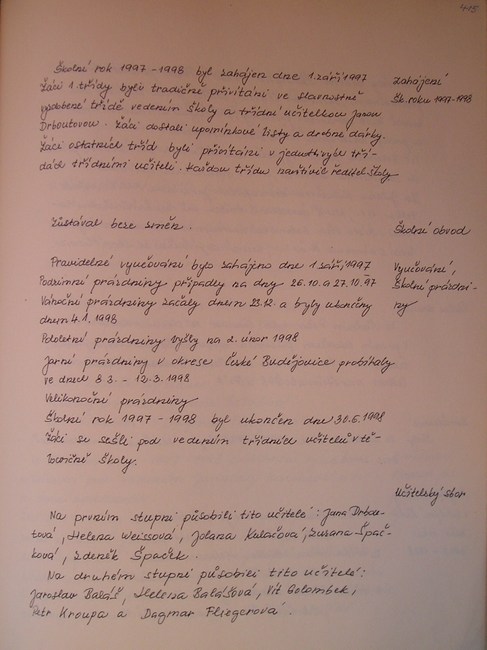 Školní rok 1997 - 1998 byl zahájen dne 1. září 1997
Zahájení
šk. roku 1997-1998
Žáci 1 třídy byli tradičně přivítáni ve slavnostně
vyzdobené třídě vedením školy a třídní učitelkou Janou
Drboutovou. Žáci dostali upomínkové listy a drobné dárky.
Žáci ostatních tříd byli přivítáni v jednotlivých tří-
dách třídními učiteli. Každou třídu navštívil ředitel školy
Zůstával beze změn.
Školní obvod
Pravidelné vyučování bylo zahájeno dne 1. září 1997
Vyučování,
školní prázdni-
ny
Podzimní prázdniny připadly na dny 26.10. a 27.10.97
Vánoční prázdniny začaly dnem 23.12. a byly ukončeny
dnem 4.1.1998
Pololetní prázdniny vyšly na 2. únor 1998
Jarní prázdniny v okrese České Budějovice probíhaly
ve dnech 8 3. - 12.3.1998
Velikonoční prázdniny
Školní rok 1997 - 1998 byl ukončen dne 30.6.1998
Žáci se sešli pod vedením třídních učitelů v tě-
locvičně školy.
Učitelský sbor
Na prvním stupni působili tito učitelé: Jana Drbou-
tová, Helena Weissová, Jolana Kulačová, Zuzana Špač-
ková, Zdeněk Špaček.
Na druhém stupni působili tito učitelé:
Jaroslav Baláš, Helena Balášová, Vít Golombek,
Petr Kroupa a Dagmar Fliegerová.